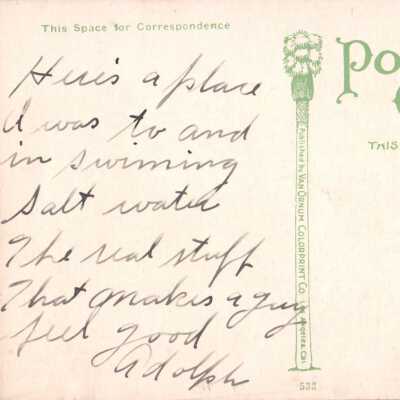 This Space for Correspondence
Here's a place
I was to and
in swiming
salt water
The real stuff
That makes a guy
feel good
Adolph
Published by VAN ORNUM COLORPRINT CO. LOS ANGELES, CAL.
532
Po
THIS